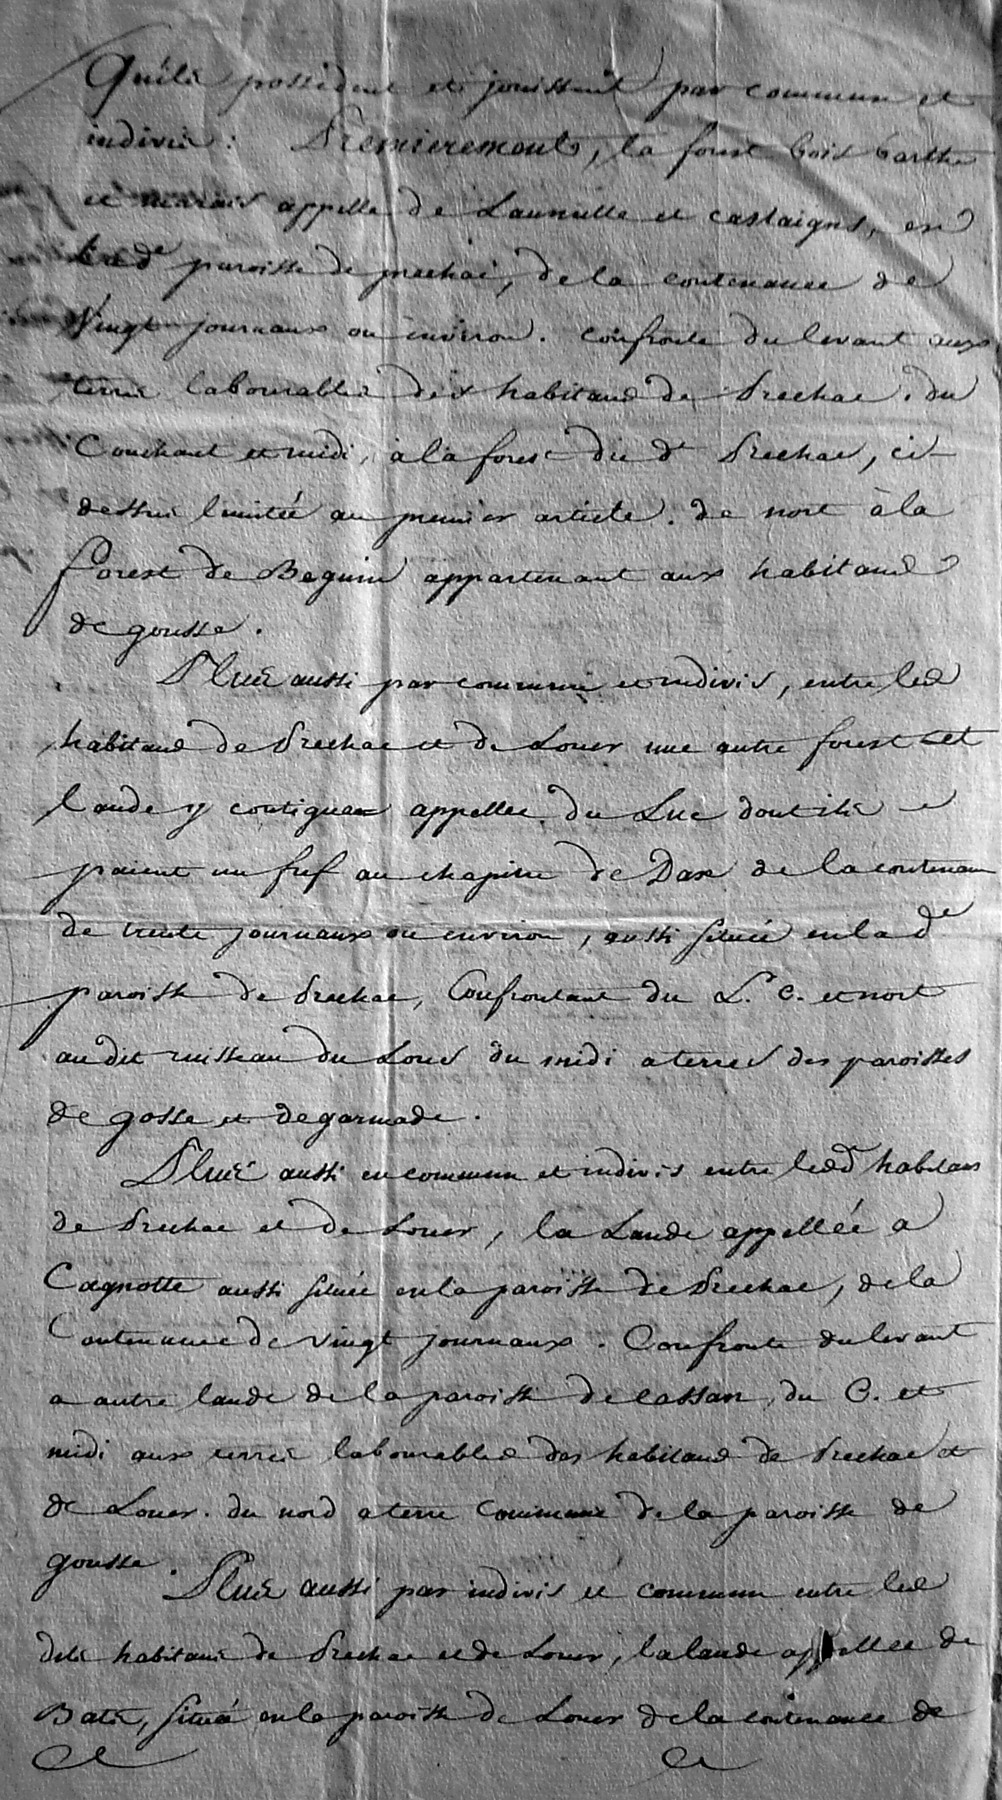 Quils possedent et jouissent par commun et
indivis : Premierement, la forest bois barthe
et marais appellé de Launielle et castaigns, en
lad.e paroisse de prechac, de la contenance de
Vingt journaux ou environ. confronte du levant aux
terres labourables des habitans de Prechac. du
Couchant et midi, à la forest du d.t Prechac, ci-
dessus limitée au premier article. de nort à la
forest de Beguin appartenant aux habitans
de gousse.
Plus aussi par commun et indivis, entre les
habitans de Prechac et de Louer une autre forest et
lande y contigues appellée du Luc dont ils
paient un fief au chapitre de Dax de la contenance
de trente journaux ou environ, aussi située en lad.e
paroisse de Prechac, Confrontant du L. C. et nort
au dit ruisseau du Loues du midi a terres des paroisses
de gosse et de garmade.
Plus aussi en commun et indivis entre lesd. habitans
de Prechac et de Louer, la Lande appellée a
Cagnotte aussi située en la paroisse de Prechac, de la
Contenance de vingt journaux. Confronte du levant
a autre lande de la paroisse de cassan, du C. et
midi aux terres labourables des habitans de Prechac et
de Louer. du nord a terre commune de la paroisse de
gousse.
Plus aussi par indivis et commun entre les
dits habitans de Prechac et de Louer, la lande appellée de
Bats, situé en la paroisse de Louer de la contenance de